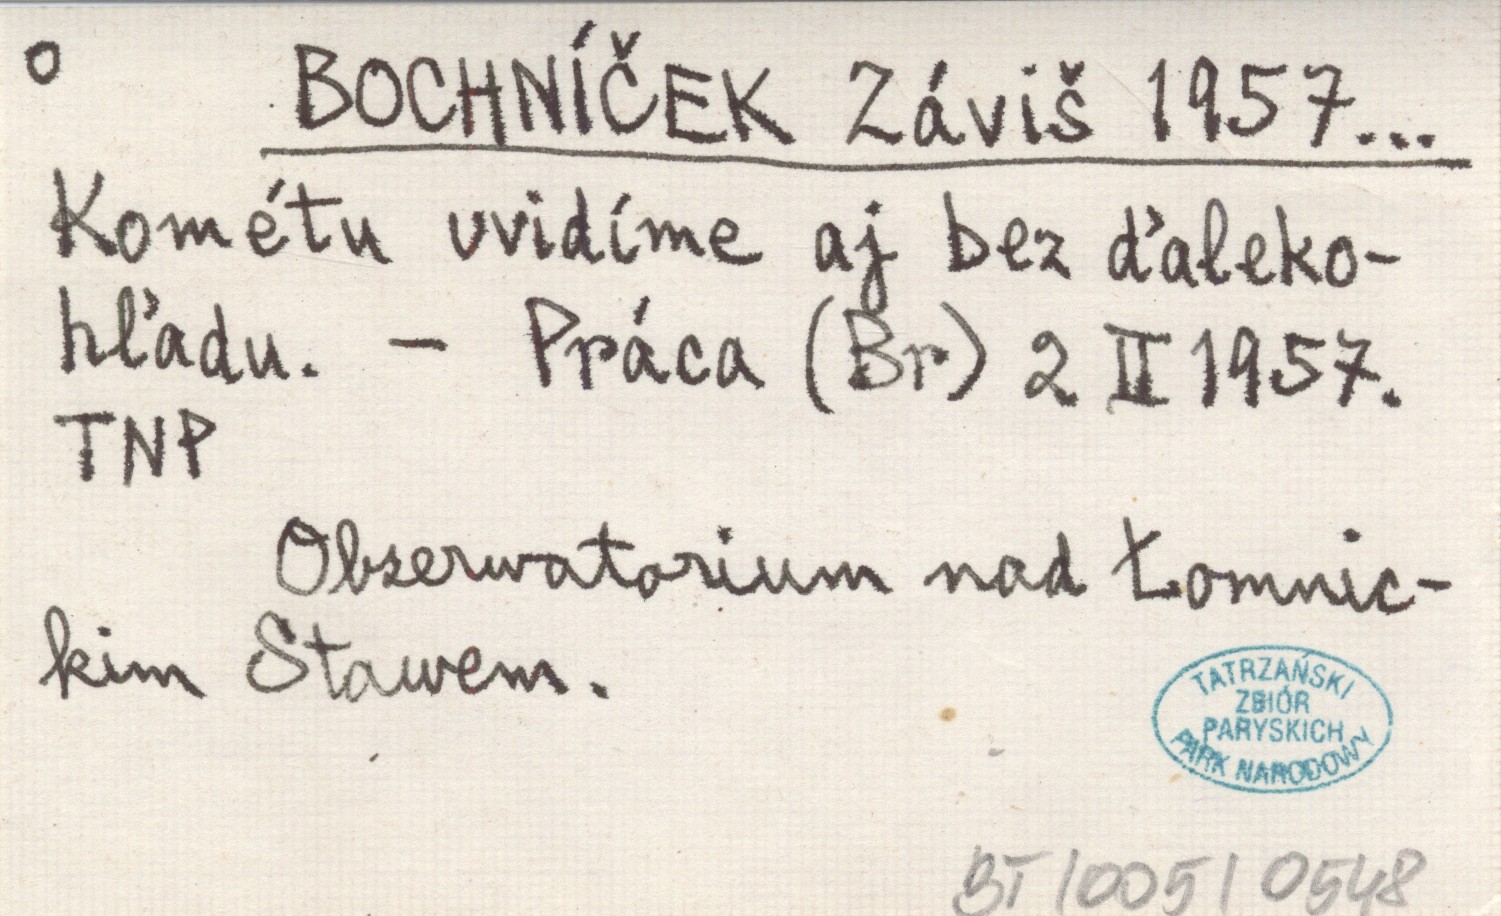 o BOCHNÍČEK Záviš 1957...
Kométu uvidíme aj bez ďaleko-
hľadu. - Práca (Br) 2 II 1957.
TNP
Obserwatorium nad Łomnic-
kim Stawem.
TATRZAŃSKI
ZBIÓR
PARYSKICH
PARK NARODOWY
BT/005/0548